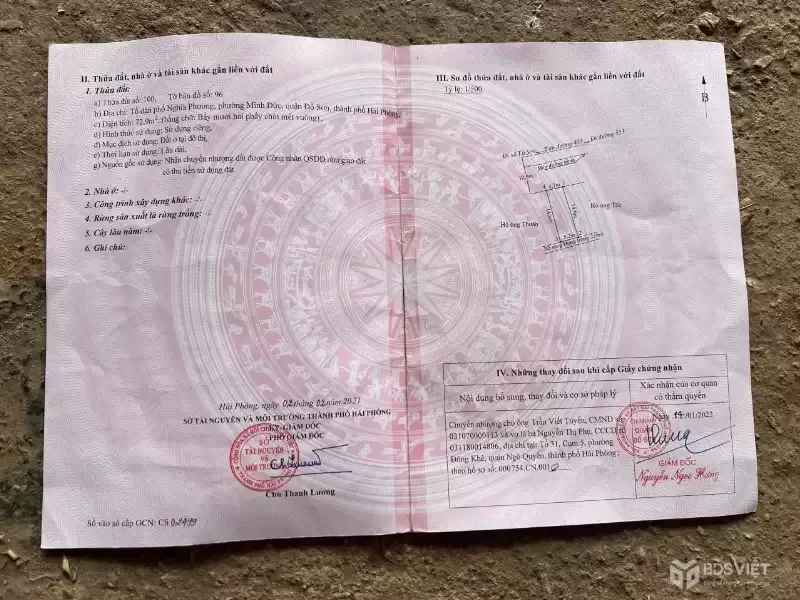 II. Thửa đất, nhà ở và tài sản khác gắn liền với đất
1. Thửa đất:
a) Thửa đất số: 100, Tờ bản đồ số: 96
b) Địa chỉ: Tổ dân phố Nghĩa Phương, phường Minh Đức, quận Đồ Sơn, thành phố Hải Phòng,
c) Diện tích: 72,9m², (bằng chữ: Bảy mươi hai phẩy chín mét vuông),
d) Hình thức sử dụng: Sử dụng riêng,
đ) Mục đích sử dụng: Đất ở tại đô thị,
e) Thời hạn sử dụng: Lâu dài,
g) Nguồn gốc sử dụng: Nhận chuyển nhượng đất được Công nhận QSDĐ như giao đất
có thu tiền sử dụng đất.
2. Nhà ở: -/-
3. Công trình xây dựng khác: -/-
4. Rừng sản xuất là rừng trồng: -/-
5. Cây lâu năm: -/-
6. Ghi chú:
Hải Phòng, ngày 02 tháng 02 năm 2021
SỞ TÀI NGUYÊN VÀ MÔI TRƯỜNG THÀNH PHỐ HẢI PHÒNG
KT. GIÁM ĐỐC
PHÓ GIÁM ĐỐC
SỞ
TÀI NGUYÊN
VÀ
MÔI TRƯỜNG
Chu Thanh Lương
Số vào sổ cấp GCN: CS
III. Sơ đồ thửa đất, nhà ở và tài sản khác gắn liền với đất
Tỷ lệ: 1/500
B
Hộ ông Thuấn
Hộ ông Tác
IV. Những thay đổi sau khi cấp Giấy chứng nhận
Nội dung bổ sung, thay đổi và cơ sở pháp lý
Xác nhận của cơ quan
có thẩm quyền
Chuyển nhượng cho ông Trần Viết Tuyên, CMND số
031070000113 và vợ là bà Nguyễn Thị Phú, CCCD
031180014806, địa chỉ tại: Tổ 31, Cụm 5, phường
Đông Khê, quận Ngô Quyền, thành phố Hải Phòng
theo hồ sơ số: 000754.CN.001
Ngày 14/01/2022
GIÁM ĐỐC
Nguyễn Ngọc Hưng
BDSVIỆT